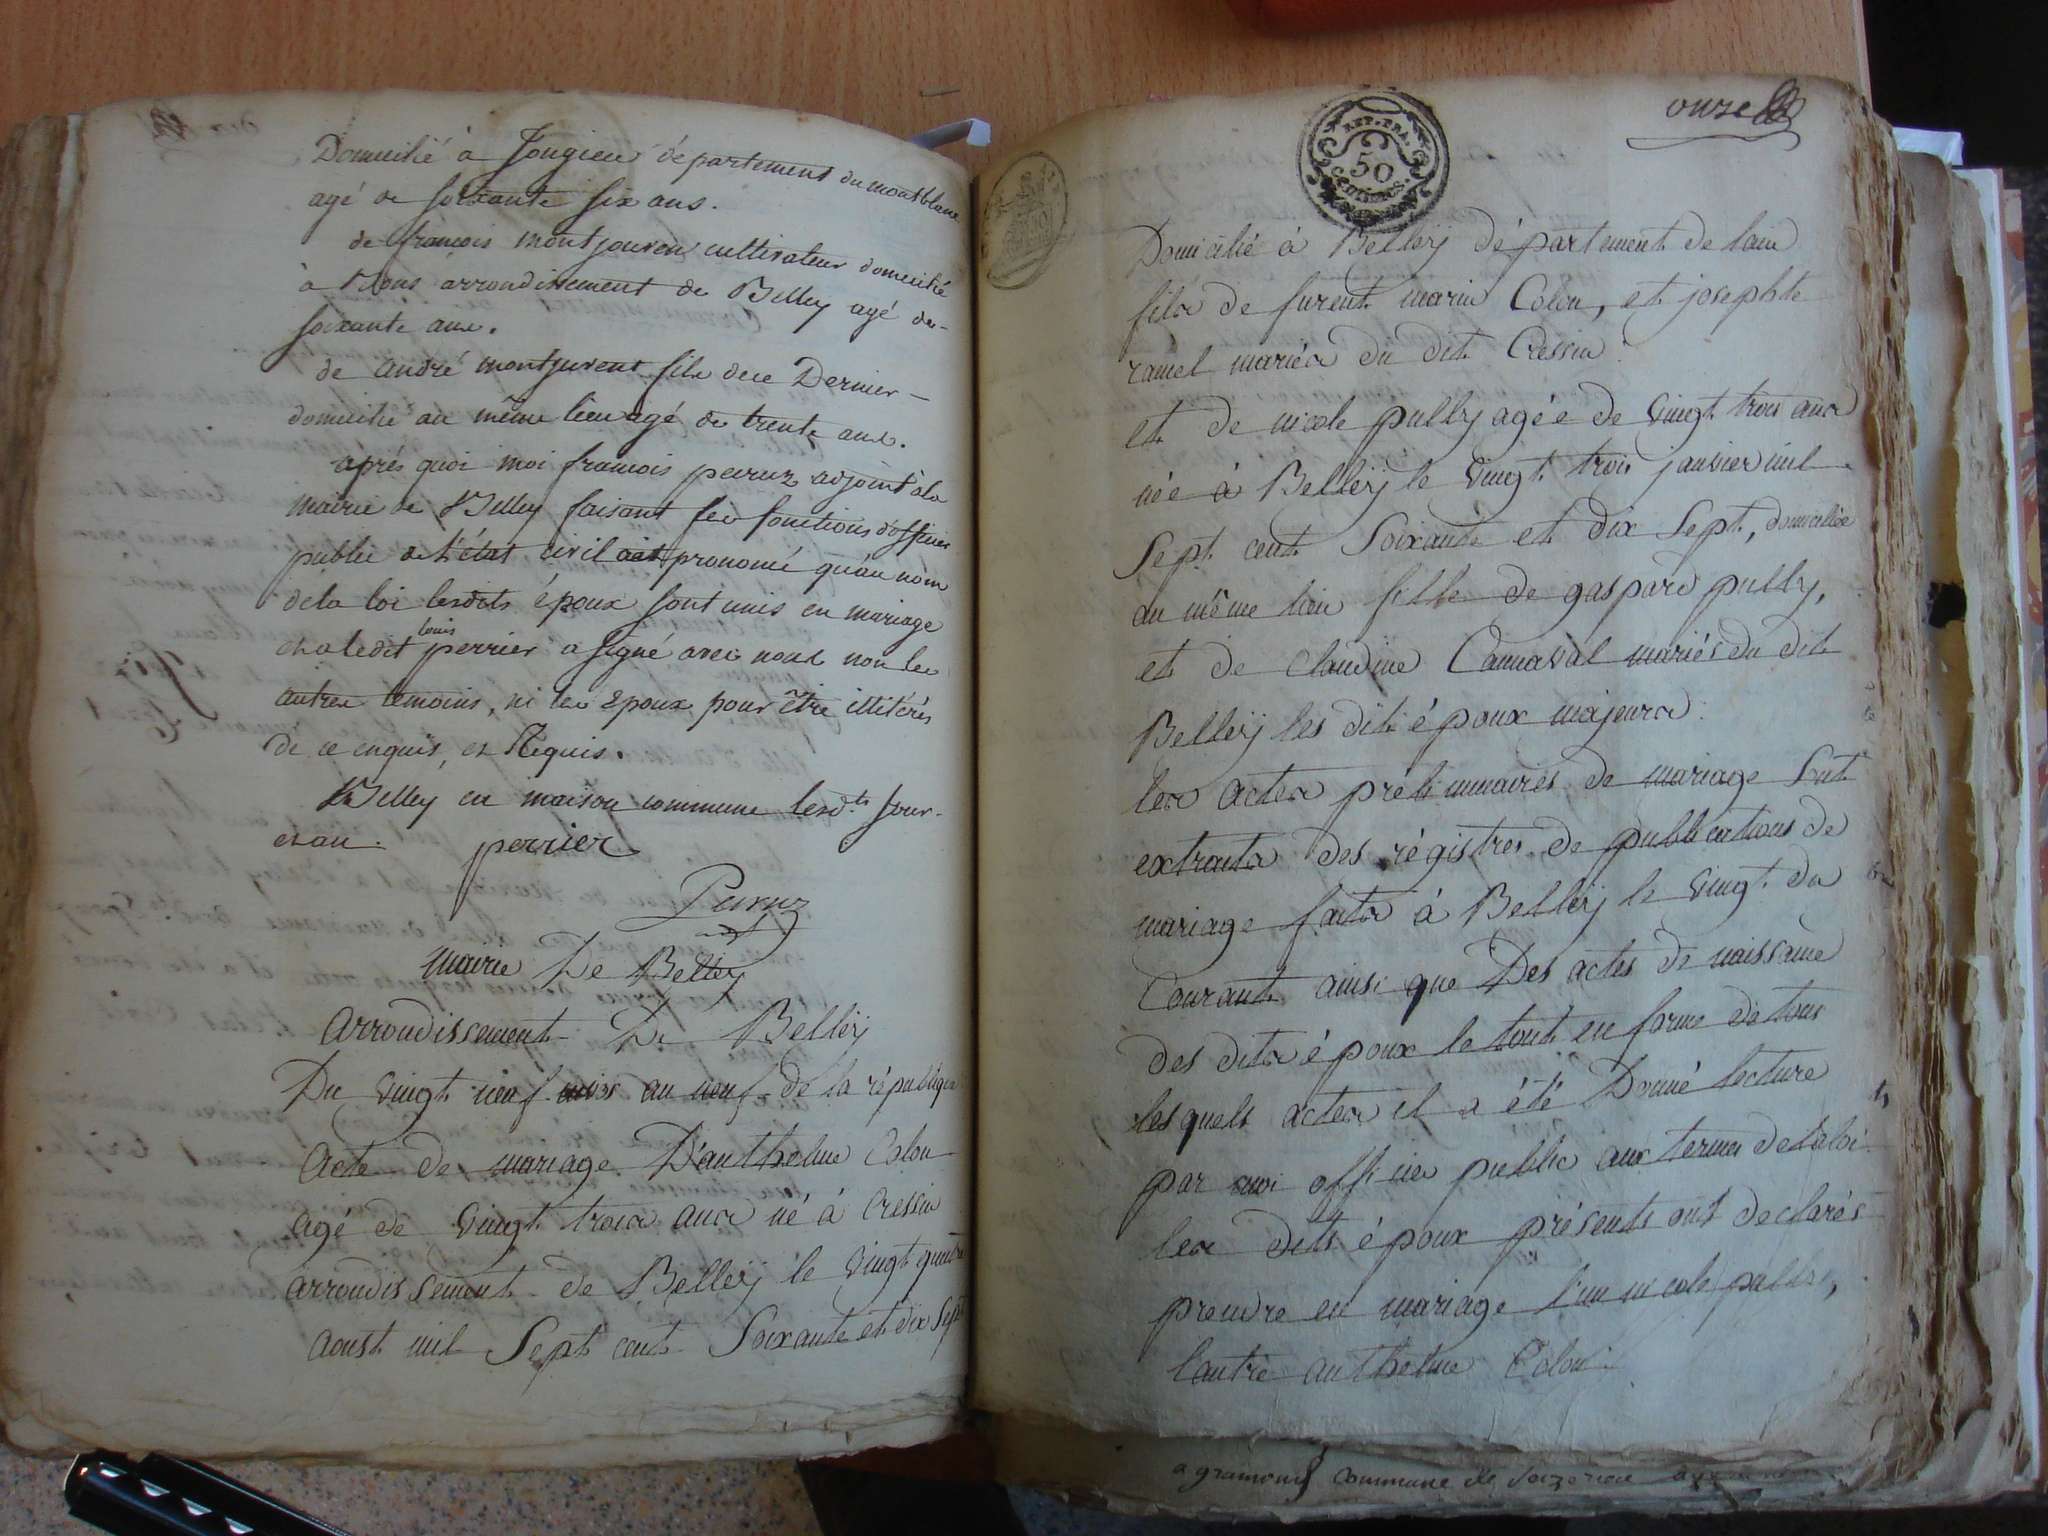 Domicilié à Jongieu département du montblanc
agé de soixante six ans.
de françois montjouven cultivateur domicilié
à arrondissement de Belley agé de-
soixante ans.
de andré montjuvent fils de ce Dernier -
domicilié au même lieu agé de trente ans.
après quoi moi françois peiruz adjoint à la
mairie de Belley faisant les fonctions d'officier
public de l'état civil ait prononcé qu'au nom
de la loi lesdits époux sont unis en mariage
et a ledit louis perrier a signé avec nous non les
autres temoins, ni les Epoux pour être illitérés
de ce enquis, et Requis.
Belley en maison commune lesd.ts jour-
et an.
perrier
Peiruz
adjt
mairie De Belley
arrondissement De Belleÿ
Du vingt neuf an neuf de la république
Acte de mariage D'anthelme Colon
agé de vingt trois ans né à Cressin
arrondissement de Belleÿ le vingt quatre
aoust mil Sept cent Soixante et dix Sept
onze
REP. FRA.
50
CENTIMES.
Domicilié à Belleÿ département de lain
fils de furent marin Colon, et josephte
ramel mariés du dit Cressin
et de nicole pully agée de vingt trois ans
née à Belleÿ le vingt trois janvier mil
Sept cent Soixante et dix Sept, domiciliée
au même lieu fille de gaspard pully,
et de claudine Carnaval mariés du dit
Belleÿ les dits époux majeurs
les actes préliminaires de mariage Sont
extraits des régistres de publications de
mariage faits à Belleÿ le vingt du
Courant ainsi que Des actes de naissance
des dits époux le tout en forme de tous
lesquels actes il a été Donné lecture
par moi officier public aux termes de la loi
les dits époux présents ont declarés
prendre en mariage l'un nicole pully,
lautre anthelme Colon.
a gramont commune de